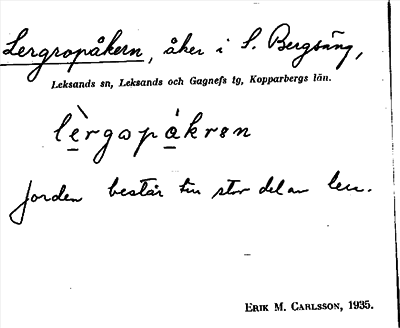 Lergropåkern, åker i S. Bergsäng,
Leksands sn, Leksands och Gagnefs tg, Kopparbergs län.
lèrgopåkrən
Jorden består till stor del av lera.
ERIK M. CARLSSON, 1935.